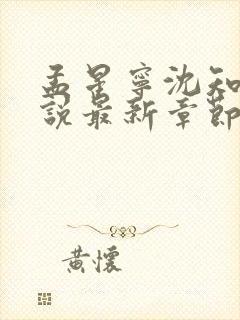 孟星寧沈知
說最新章節
黃懷